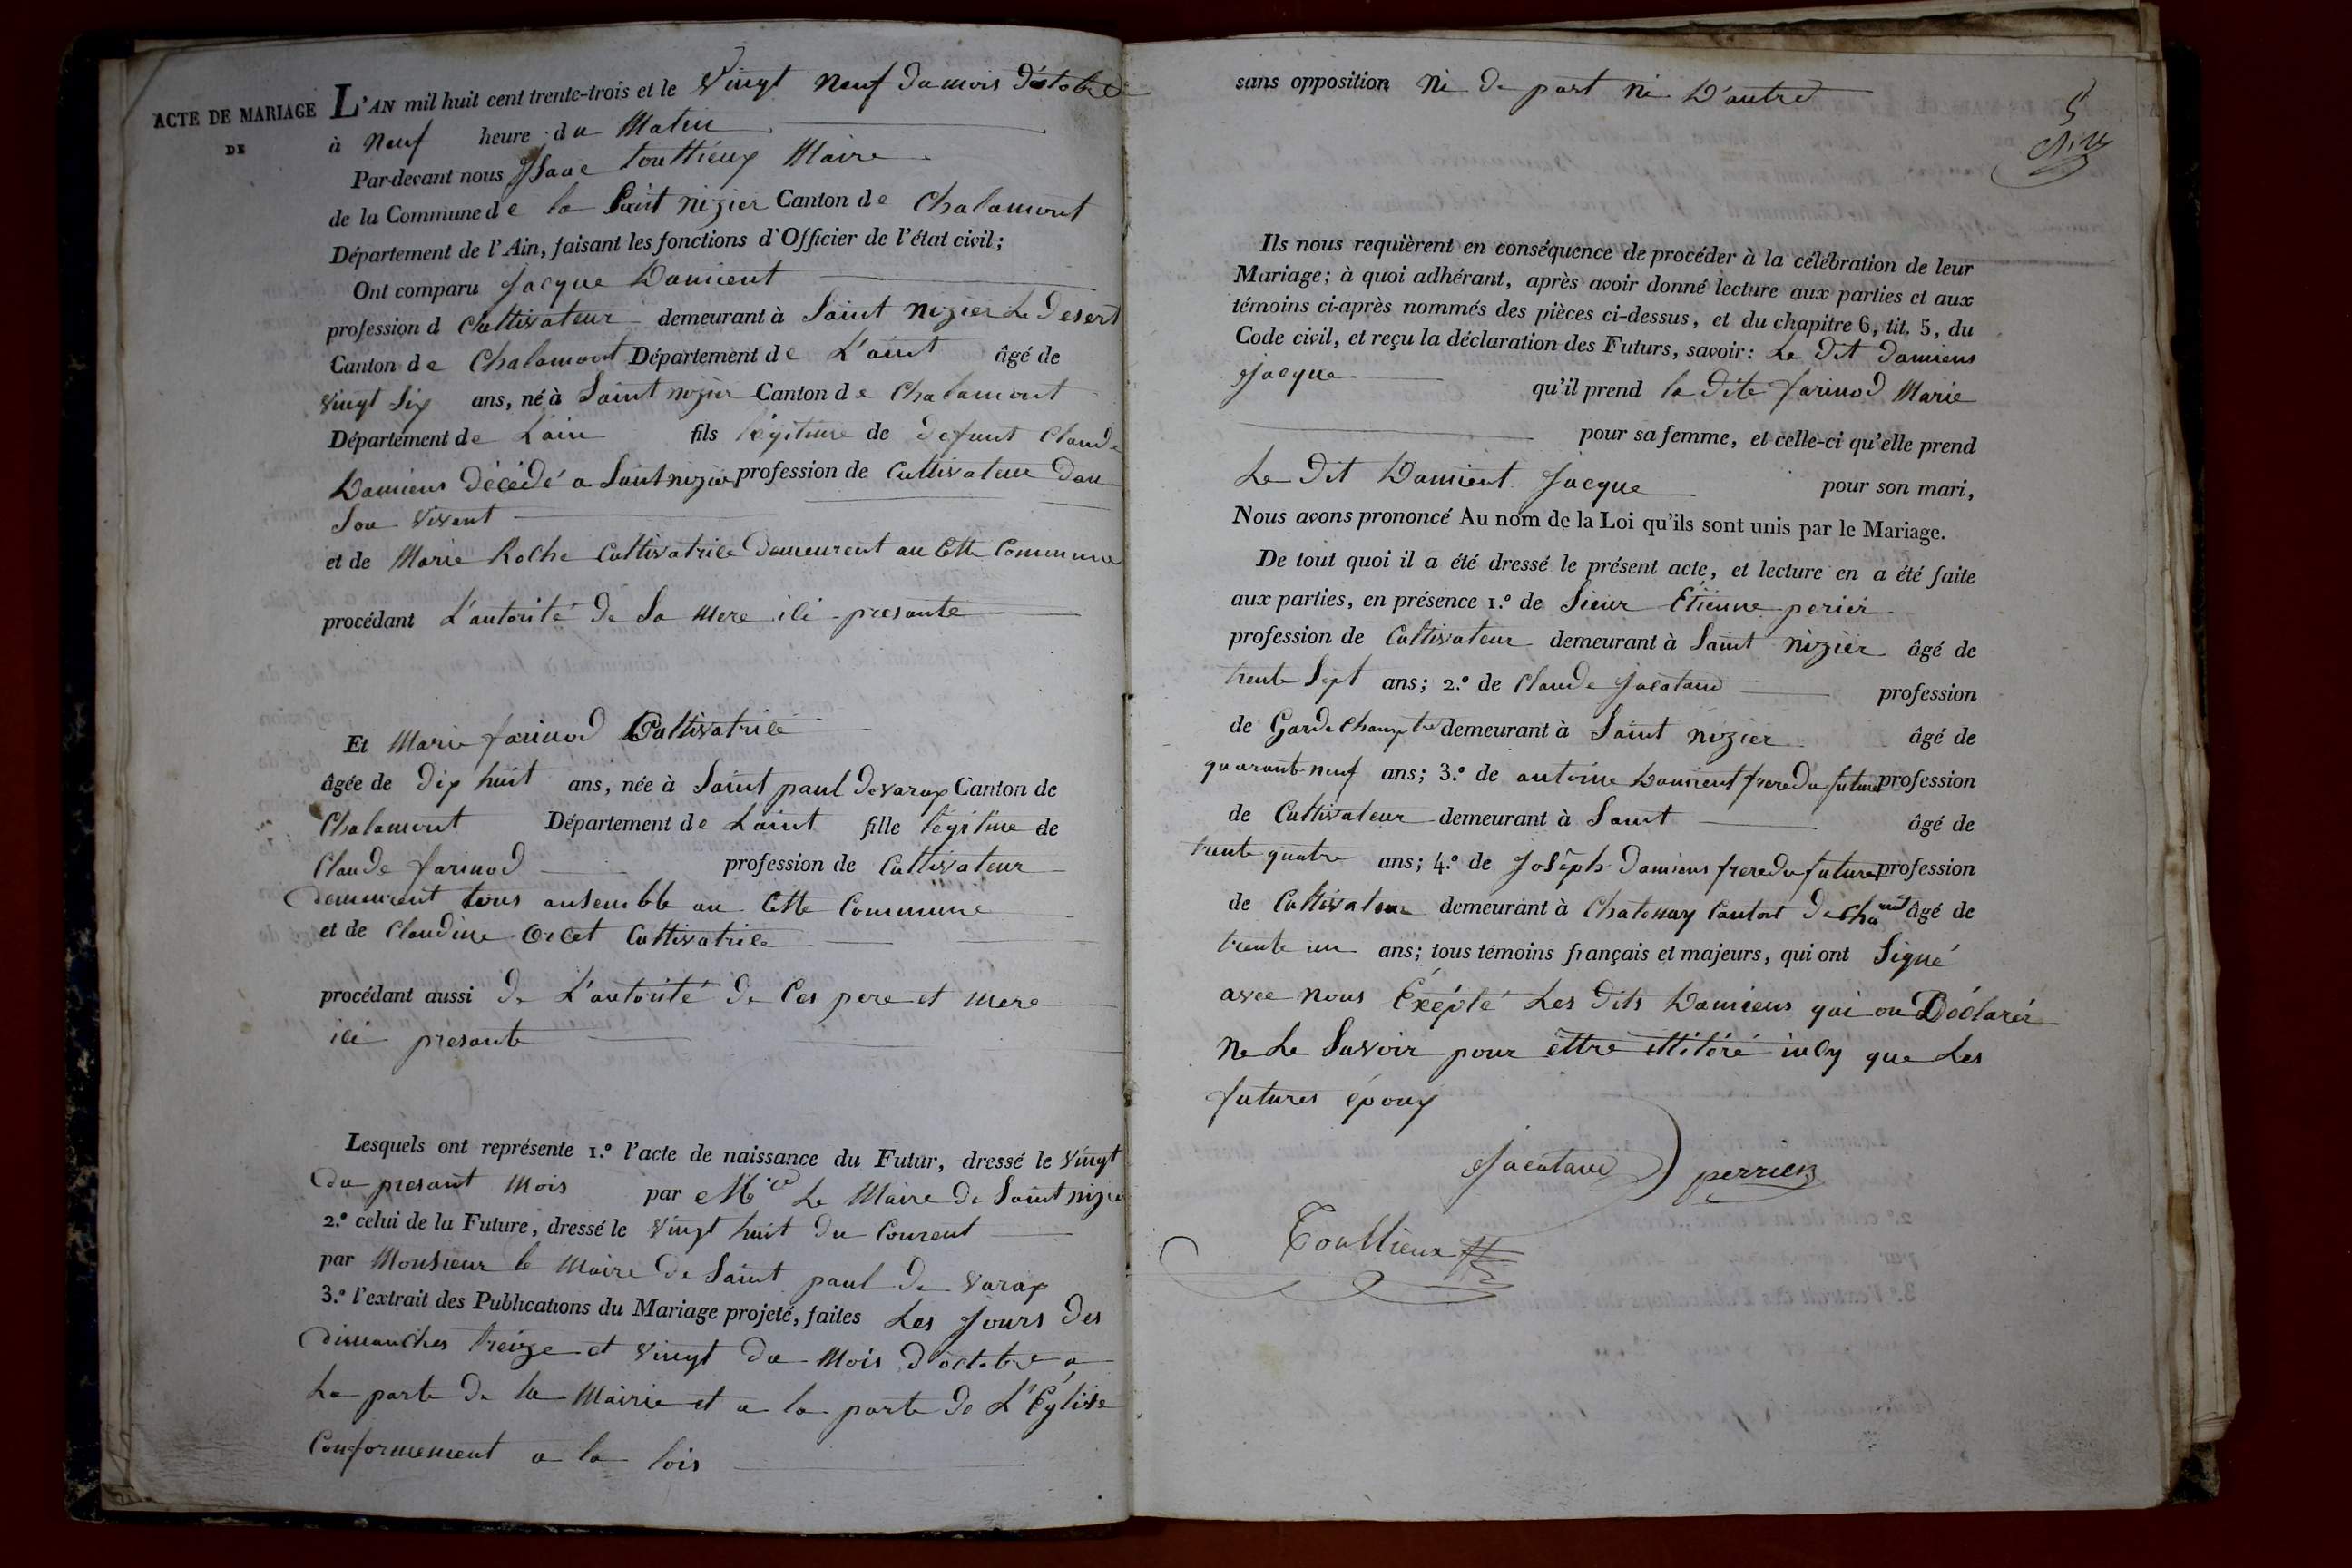 ACTE DE MARIAGE
DE
L'AN mil huit cent trente-trois et le Vingt neuf du mois d'octobre
à neuf heure du Matin
Par-devant nous Isaac Touttieux Maire
de la Commune de la Saint nizier Canton de Chalamont
Département de l'Ain, faisant les fonctions d'Officier de l'état civil;
Ont comparu Jacque Damient
profession d Cultivateur demeurant à Saint nizier Le Desert
Canton de Chalamont Département de L'aint âgé de
vingt Six ans, né à Saint nizier Canton de Chalamont
Département de Lain fils légitime de defunt Claude
Damiens décédé a Saint nizier profession de Cultivateur dou
Son Vivant
et de Marie Roche Cultivatrice demeurent au Cette Commune
procédant L'autorité de Sa mere ici presante
Et Marie farinod Cultivatrice
âgée de dix huit ans, née à Saint paul devarax Canton de
Chalamont Département de Laint fille légitime de
Claude farinod profession de Cultivateur
demeurent tous ansemble au Cette Commune
et de Claudine Cultivatrice
procédant aussi de L'autorité de Ces pere et mere
ici presante
Lesquels ont représente 1.º l'acte de naissance du Futur, dressé le Vingt
du presant mois par Mr Le Maire de Saint nizier
2.º celui de la Future, dressé le vingt huit du Courent
par Monsieur le Maire de Saint paul de varax
3.º l'extrait des Publications du Mariage projeté, faites Les Jours des
dimanches treize et vingt du mois d'octobre a
La porte de la Mairie et a la porte de L'Église
Conformement a la lois
5
sans opposition ni de part ni D'autre
Ils nous requièrent en conséquence de procéder à la célébration de leur
Mariage; à quoi adhérant, après avoir donné lecture aux parties et aux
témoins ci-après nommés des pièces ci-dessus, et du chapitre 6, tit. 5, du
Code civil, et reçu la déclaration des Futurs, savoir: Le dit damiens
Jacque qu'il prend la dite farinod Marie
pour sa femme, et celle-ci qu'elle prend
Le dit Damient Jacque pour son mari,
Nous avons prononcé Au nom de la Loi qu'ils sont unis par le Mariage.
De tout quoi il a été dressé le présent acte, et lecture en a été faite
aux parties, en présence 1.º de Sieur Étienne perier
profession de Cultivateur demeurant à Saint nizier âgé de
trente Sept ans; 2.º de Claude Jacatand profession
de Garde Champtre demeurant à Saint nizier âgé de
quarante neuf ans; 3.º de antoine Damient frere du future profession
de Cultivateur demeurant à Saint âgé de
trente quatre ans; 4.º de Joseph damiens frere du future profession
de Cultivateur demeurant à Chatenay Canton de Chamnt âgé de
trente un ans; tous témoins français et majeurs, qui ont Signé
avec nous Éxépté Les dits Damiens qui on Déclarér
ne Le Savoir pour ettre ittitéré incy que Les
futures époux
Jacatand perrier
Touttieux